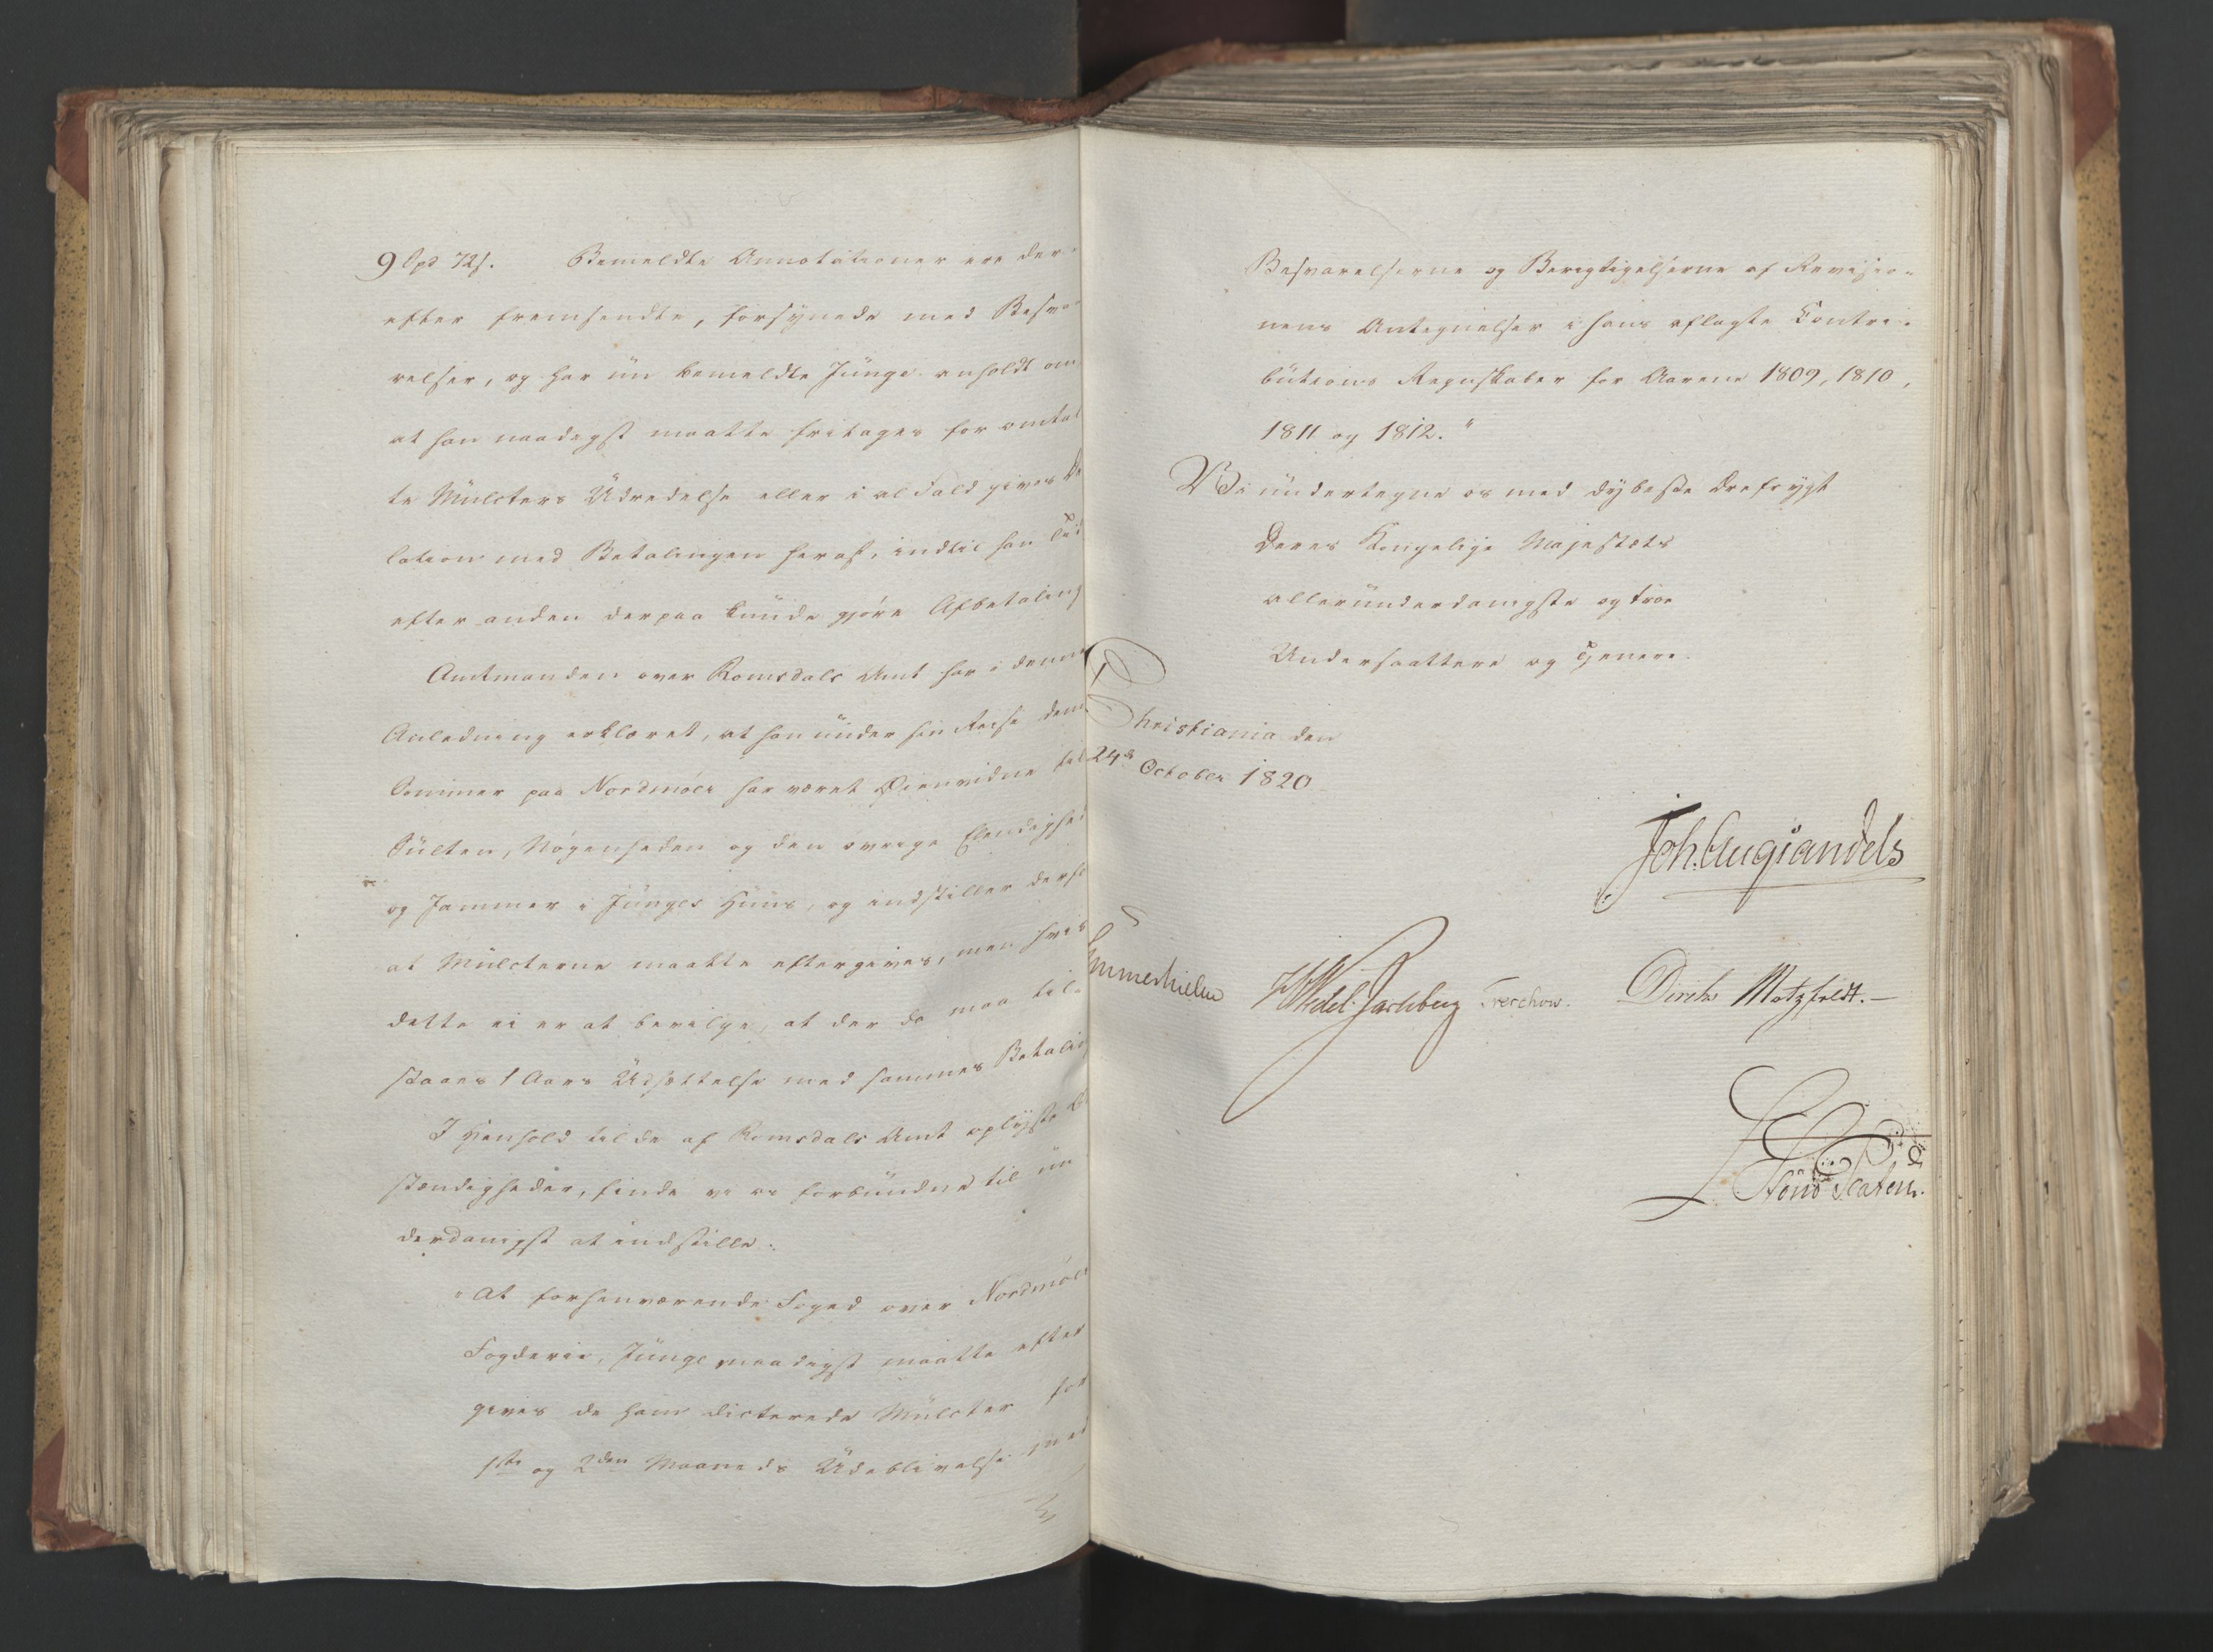 9 Spd 72 s. Bemeldte Annotationer ere der-
efter fremsendte, forsynede med Besva-
relser, og har nu bemeldte Junge anholdt om
at han naadigst maatte fritages for omtal
te Mulcters Udredelse eller i al Fald gives
lation med Betalingen heraf, indtil han Tid
efter anden derpaa kunde gjøre Afbetaling
Amtmanden over Romsdals Amt har i denne
Anledning erklæret, at han under sin Reise denne
Sommer paa Nordmøer har været Øienvidne til
Sulten, Nøgenheden og den øvrige Elendighed
og Jammer i Junges Huus, og indstiller derfor
at Mulcterne maatte eftergives, men hvis
dette ei er at bevilge, at der da maa til-
staaes 1 Aars Udsættelse med sammes Betaling
I Henhold til de af Romsdals Amt oplyste
stændigheder, finde vi os forbundne til un
derdanigst at indstille:
"At forhenværende Foged over Nordmøers
Fogderie, Junge naadigst maatte efter
gives de ham dicterede Mulcter for
1ste og 2den Maaneds Udeblivelse med
Besvarelserne og Berigtigelserne af Revisio-
nens Antegnelser i hans aflagte Contri-
butions Regnskaber for Aarene 1809, 1810,
1811 og 1812."
Vi undertegne os med dybeste Ærefrygt
Deres Kongelige Majestæts
allerunderdanigste og troe
Undersaattere og Tjenere.
Christiania den
24de October 1820
Joh. Aug Sandels
Sommerhielm HWedel-Jarlsberg Treschow. Diriks Motzfeldt.